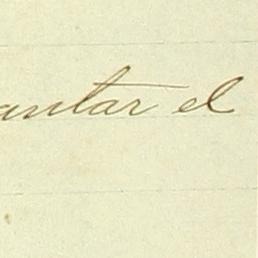 antar el